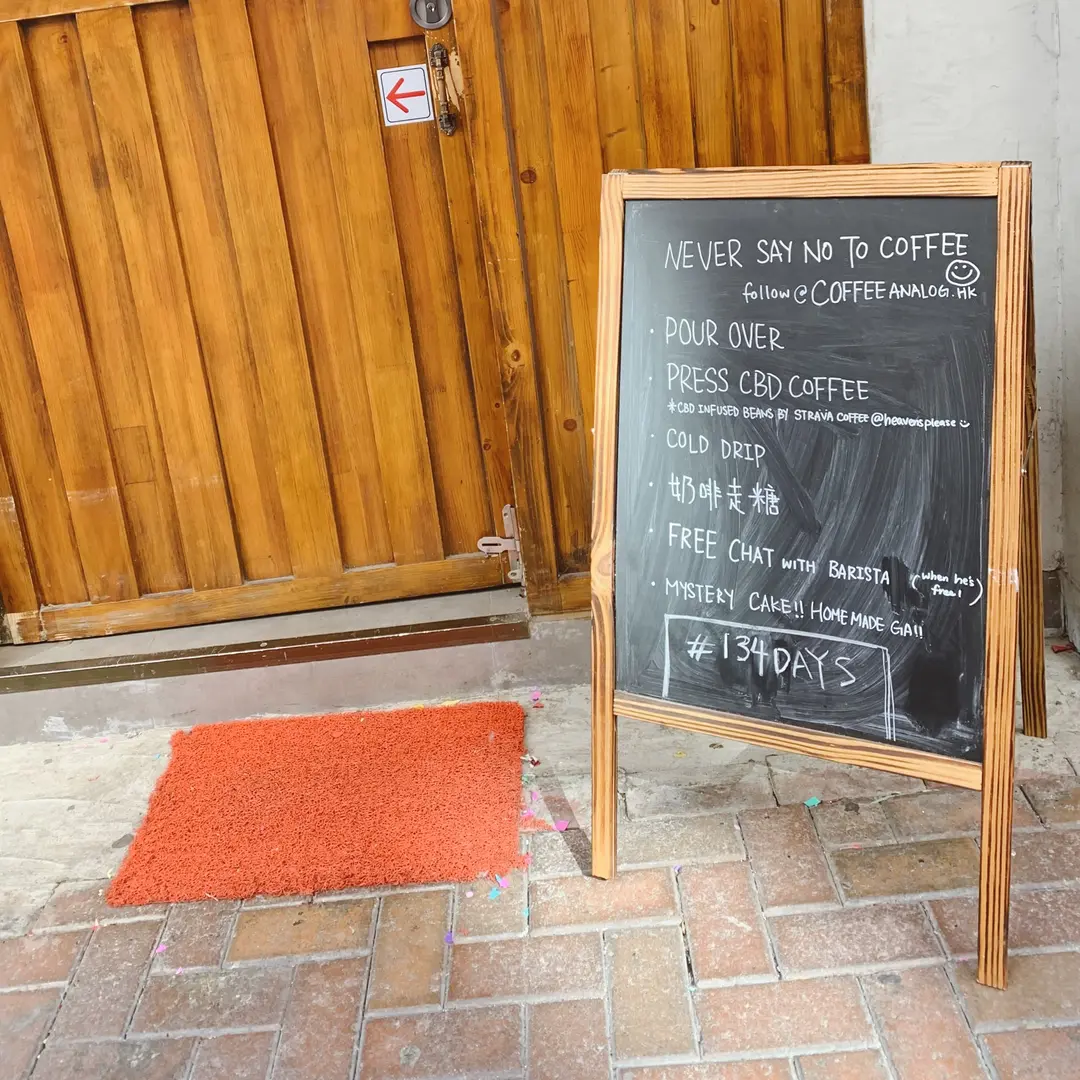 NEVER SAY NO TO COFFEE
follow @COFFEEANALOG.HK
· POUR OVER
· PRESS CBD COFFEE
*CBD INFUSED BEANS BY STRAVA COFFEE @heavensplease
· COLD DRIP
· 奶啡走糖
· FREE CHAT WITH BARISTA (when he's free!)
· MYSTERY CAKE!! HOMEMADE GA!!
#134DAYS